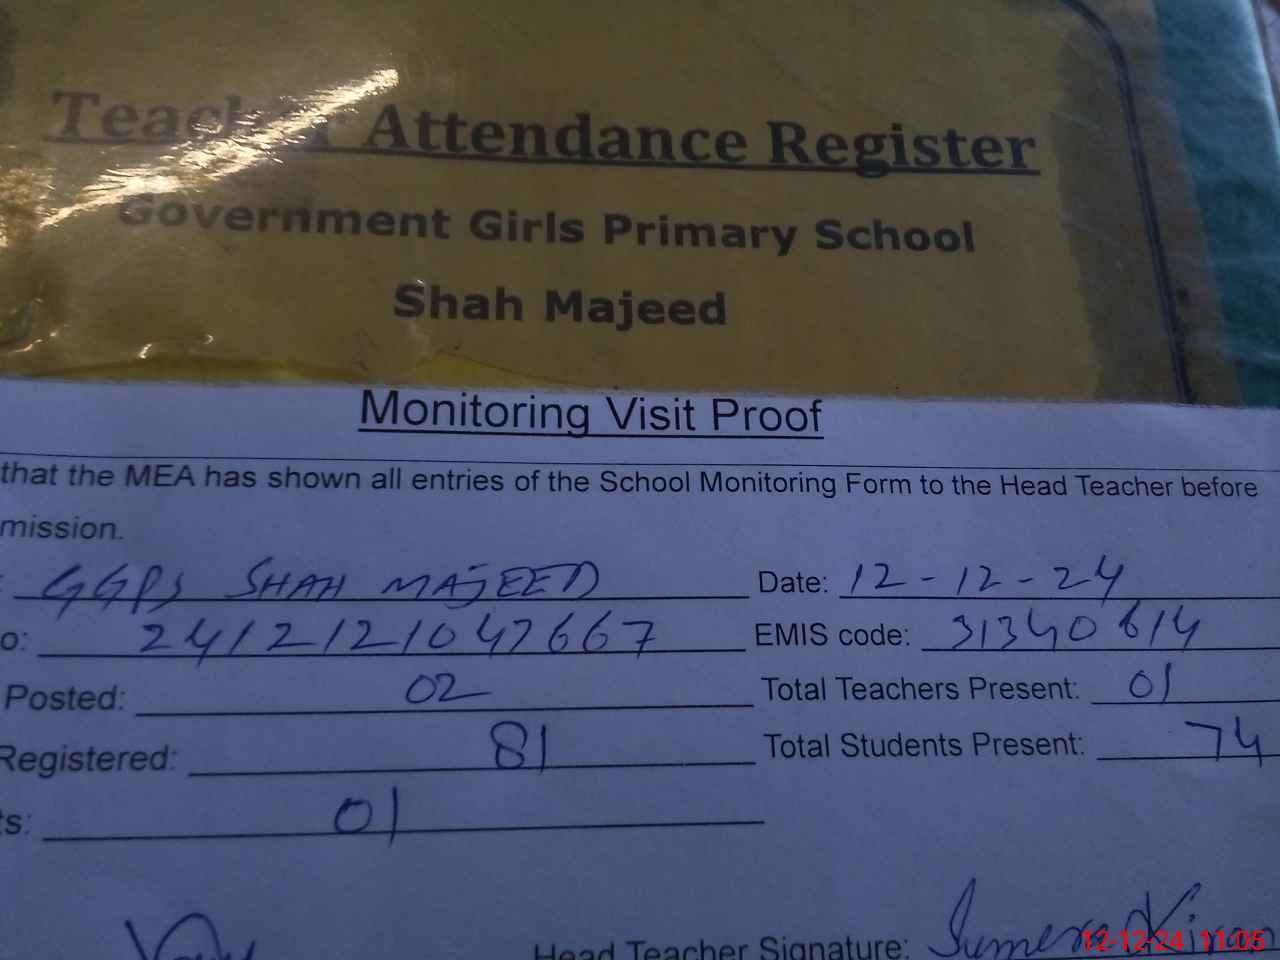 Teacher Attendance Register
Government Girls Primary School
Shah Majeed
Monitoring Visit Proof
that the MEA has shown all entries of the School Monitoring Form to the Head Teacher before
mission.
: GGPS SHAH MAJEED Date: 12-12-24
o: 2412121047667 EMIS code: 31340614
Posted: 02 Total Teachers Present: 01
Registered: 81 Total Students Present: 74
ts: 01
Head Teacher Signature: Sumera Kiran
12-12-24 11:05